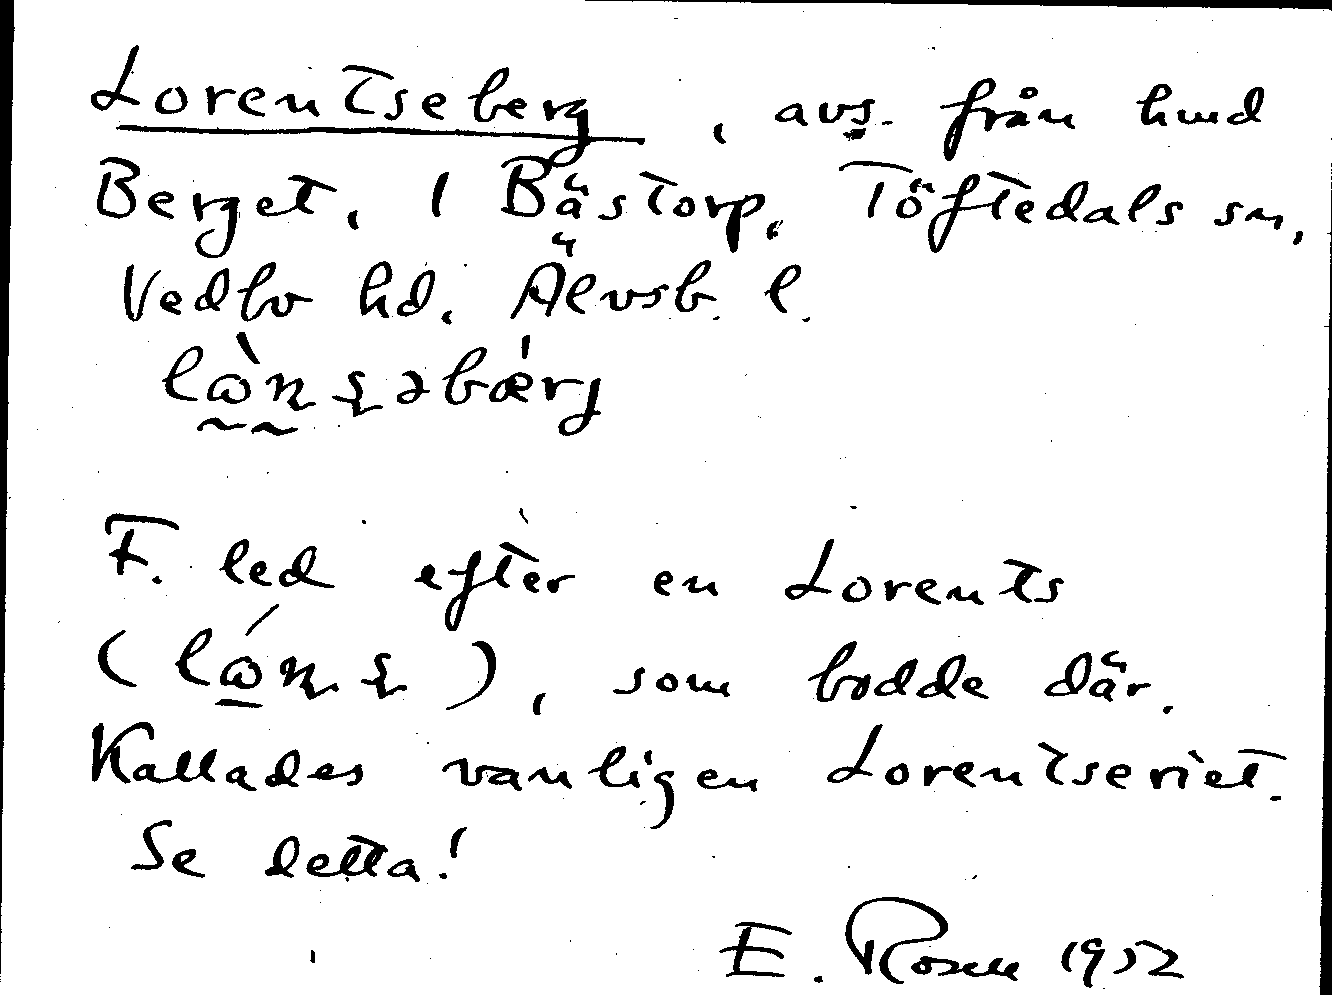 Lorentseberg, avs. från hmd
Berget, 1 Bästorp, Töftedals sn,
Vedbo hd, Älvsb. l.
F. led efter en Lorents
( ), som bodde där.
Kallades vanligen Lorentseriet.
Se detta!
E. Rosen 1952